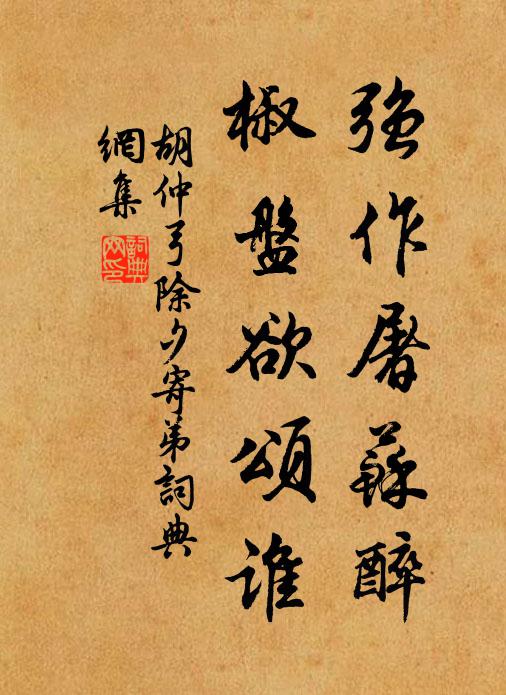 強作屠蘇醉
椒盤欲頌誰
胡仲弓除夕寄弟詞典
網集
詞典
网印